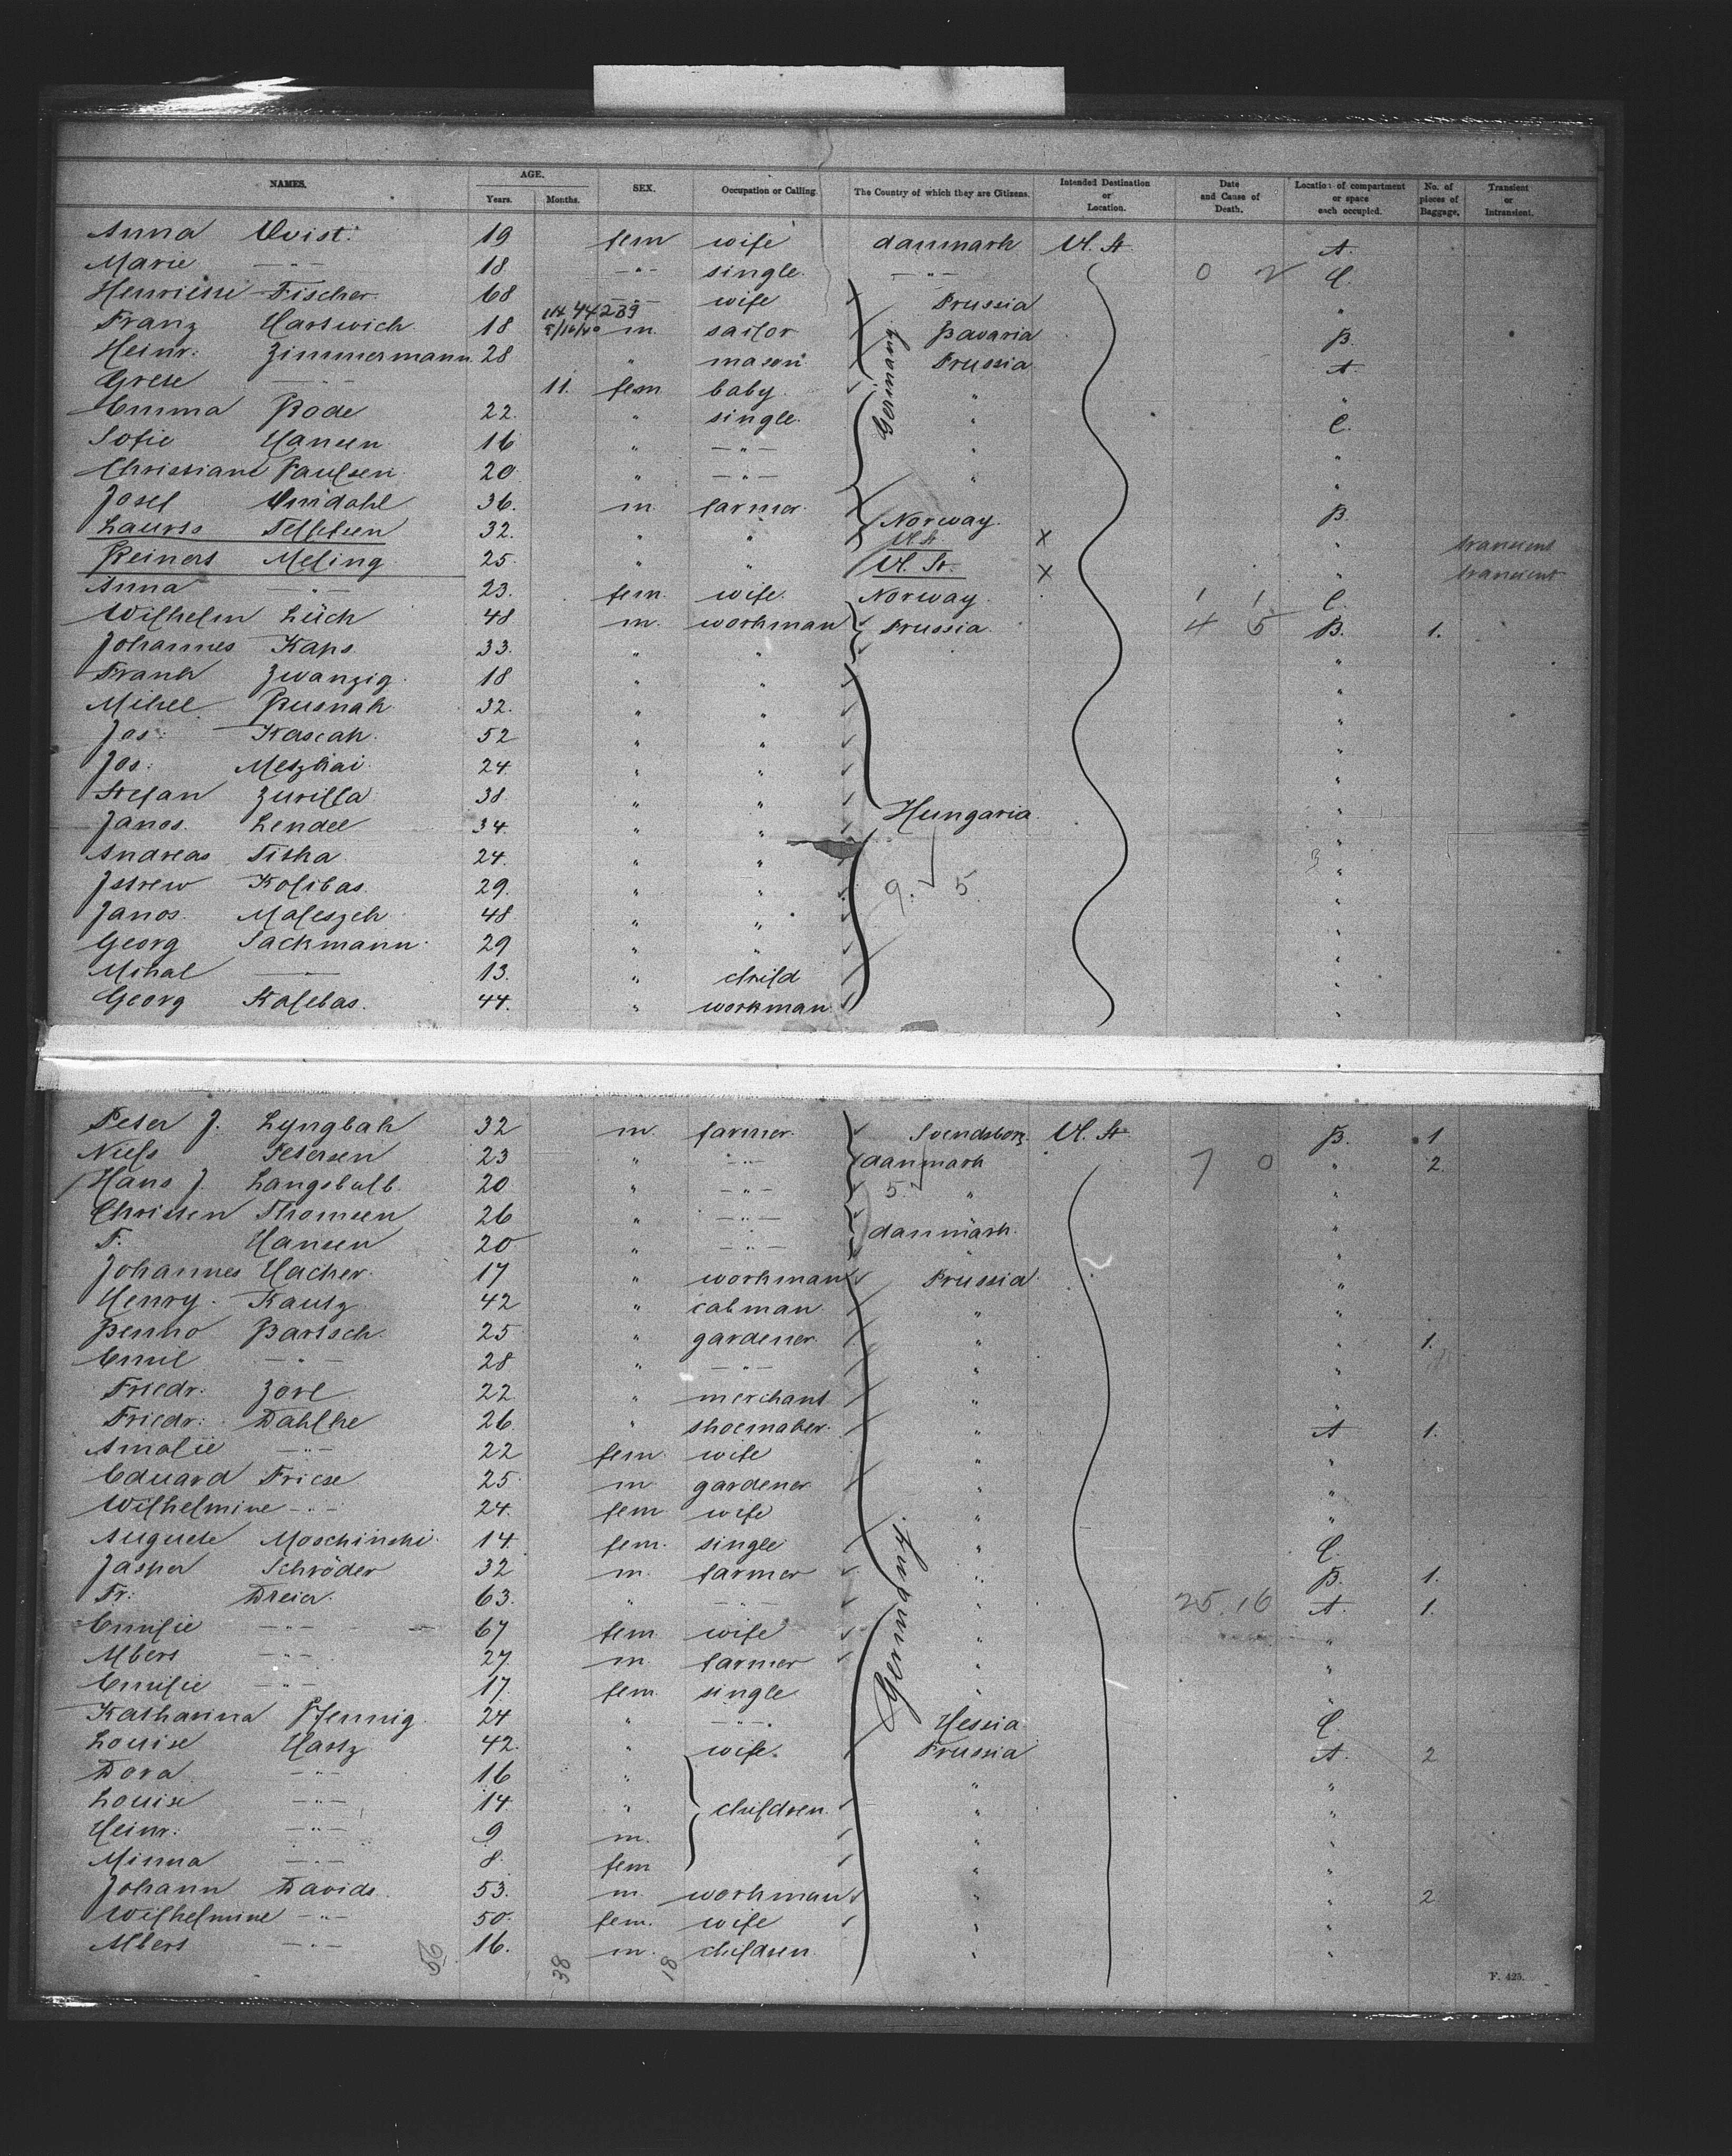 NAMES. AGE. SEX. Occupation or Calling. The Country of which they are Citizens. Intended Destination or Location. Date and Cause of Death. Location of compartment or space each occupied. No. of pieces of Baggage. Transient or Intransient.
Years. Months.
Anna Qvist. 19 fem wife danmark U. St. A.
Marie -"- 18 -"- single. -"- 0 2 C.
Henriette Fischer. 68 -"- wife Prussia "
Franz Hartwich 18 m. sailor Bavaria B.
Heinr: Zimmermann 28 " mason Prussia A.
Grete -"- 11. fem baby. " "
Emma Bode 22. " single. " C.
Sofie Hansen 16 " -"- " "
Christiane Paulsen 20 " -"- " "
Josef 36. m. farmer. Norway. B.
Laurts 32. " " U. St. X " transient
Reinert Meling 25 " " U. St. X " transient
Anna -"- 23. fem. wife. Norway. 1 1 C.
Wilhelm Lück 48 m. workman Prussia. 4 5 B. 1.
Johannes Kaps 33. " " "
Frank Zwanzig 18 " " "
Mihel Pusnak 32. " " "
Jos: Kascak. 52 " " "
Jos: Metzkai 24. " " "
Stefan Zurilla 38 " " "
Janos. Lendel 34. " " Hungaria. "
Andreas Tiska 24. " " "
Kolibas. 29. " " 9. 5. "
Janos. Maleszek 48 " " "
Georg Sackmann 29 " " "
Mihal -"- 13. " child "
Georg Kolebas. 44. " workman "
Germany
Peter J. Lyngbak 32 m. farmer. Svendborg. U. St. B. 1
Niels Petersen 23 " -"- danmark 7 0 " 2.
Hans J. 20 " -"- 5. " "
Christen Thomsen 26 " -"- danmark. "
F. Hansen 20 " -"- " "
Johannes Hacker. 17 " workman Prussia. "
Henry. Kautz 42 " cabman " "
Benno Bartsch. 25 " gardener. " " 1.
Emil -"- 28 " -"- " "
Friedr. Zorl 22 " merchant " "
Friedr: Dahlke 26 " shoemaker. " A 1.
Amalie -"- 22 fem. wife " "
Eduard Friese 25 m gardener " "
Wilhelmine -"- 24. fem wife " "
Auguste Moschinski. 14 fem. single " C.
Jasper Schröder 32 m. farmer " B. 1.
Fr: Dreier. 63. " -"- " 25. 16 A. 1.
Emilie -"- 67 fem. wife " "
Albert -"- 27. m. farmer " "
Emilie -"- 17. fem single " "
Katharina Pfennig. 24 " -"- Hessia C.
Louise Hartz 42. " wife. Prussia A. 2
Dora -"- 16 " " "
Louise -"- 14 " children. " "
Heinr: -"- 9 m. " "
Minna -"- 8. fem " "
Johann Davids. 53. m. workman " " 2
Wilhelmine -"- 50. fem. wife " "
Albert -"- 16. m. children " "
Germany.
56 38 18
F. 425.